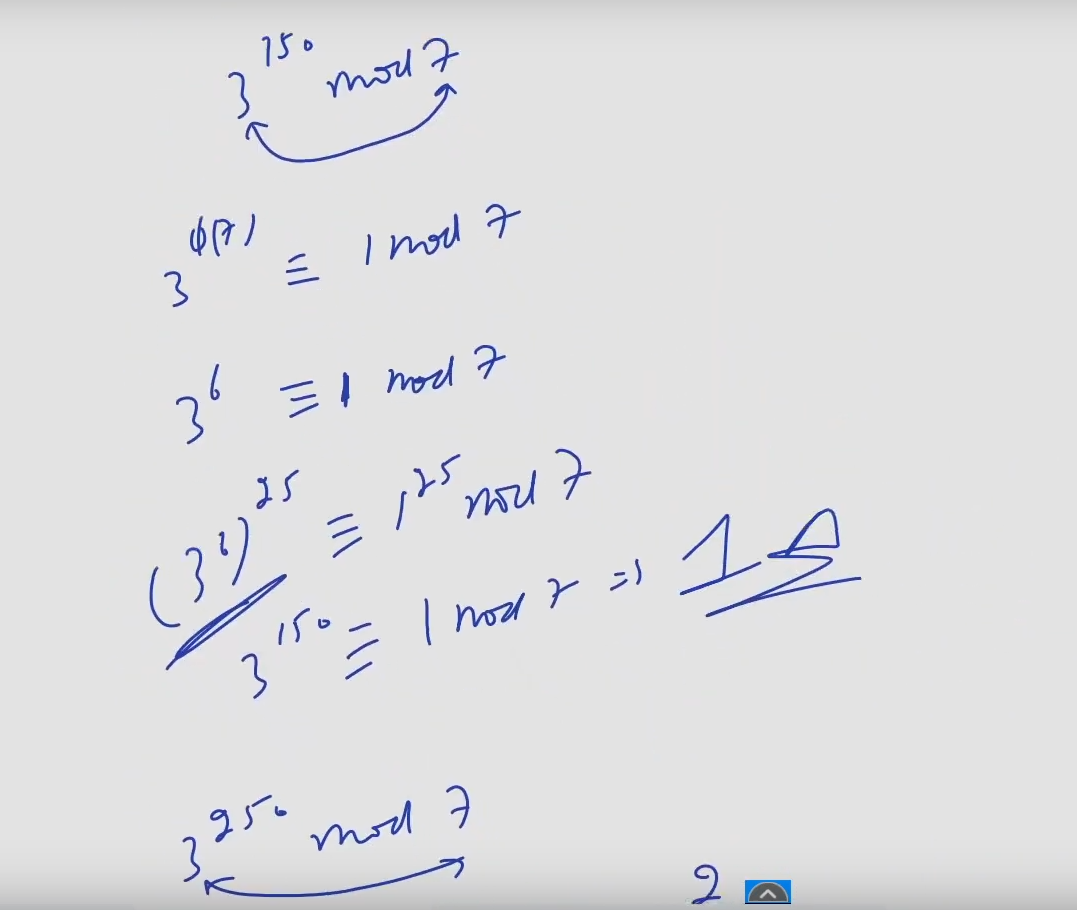 3^150 mod 7
3^ϕ(7) ≡ 1 mod 7
3^6 ≡ 1 mod 7
(3^6)^25 ≡ 1^25 mod 7
3^150 ≡ 1 mod 7 => 1
3^250 mod 7
2